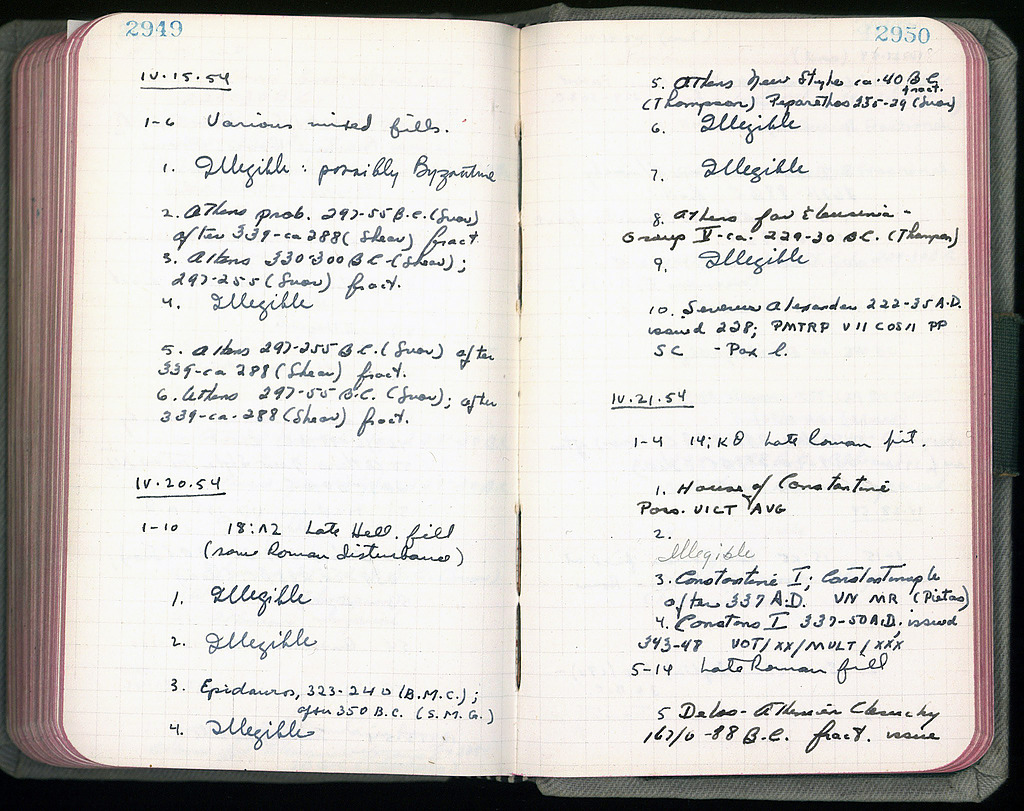 2949
IV.15.54
1-6 Various mixed fills.
1. Illegible: possibly Byzantine
2. Athens prob. 297-55 B.C. (Svor)
after 339-ca 288 (Shear) fract.
3. Athens 330-300 B.C-(Shear);
297-255 (Svor) fract.
4. Illegible
5. Athens 297-255 B.C. (Svor) after
339-ca 288 (Shear) fract.
6. Athens 297-55 B.C. (Svor); after
339-ca-288 (Shear) fract.
IV.20.54
1-10 18:Λ2 Late Hell. fill
(some Roman disturbance)
1. Illegible
2. Illegible
3. Epidauros, 323-240 (B.M.C.);
after 350 B.C. (S.M.G.)
4. Illegible
2950
5. Athens New Style ca. 40 B.C. fract.
(Thompson) Peparethos 235-29 (Svor)
6. Illegible
7. Illegible
8. Athens for Eleusinia-
Group V-ca. 229-30 B.C. (Thompson)
9. Illegible
10. Severus Alexander 222-35 A.D.
issued 228; PMTRP VII COS II PP
SC - Pax l.
IV.21.54
1-4 14:ΚΘ Late Roman pit.
1. House of Constantine
Poss. VICT AVG
2.
Illegible
3. Constantine I; Constantinople
after 337 A.D. VN MR (Pietas)
4. Constans I 337-50 A.D. issued
343-48 VOT/XX/MULT/XXX
5-14 Late Roman fill
5 Delos-Athenian Cleruchy
167/0-88 B.C. fract. issue